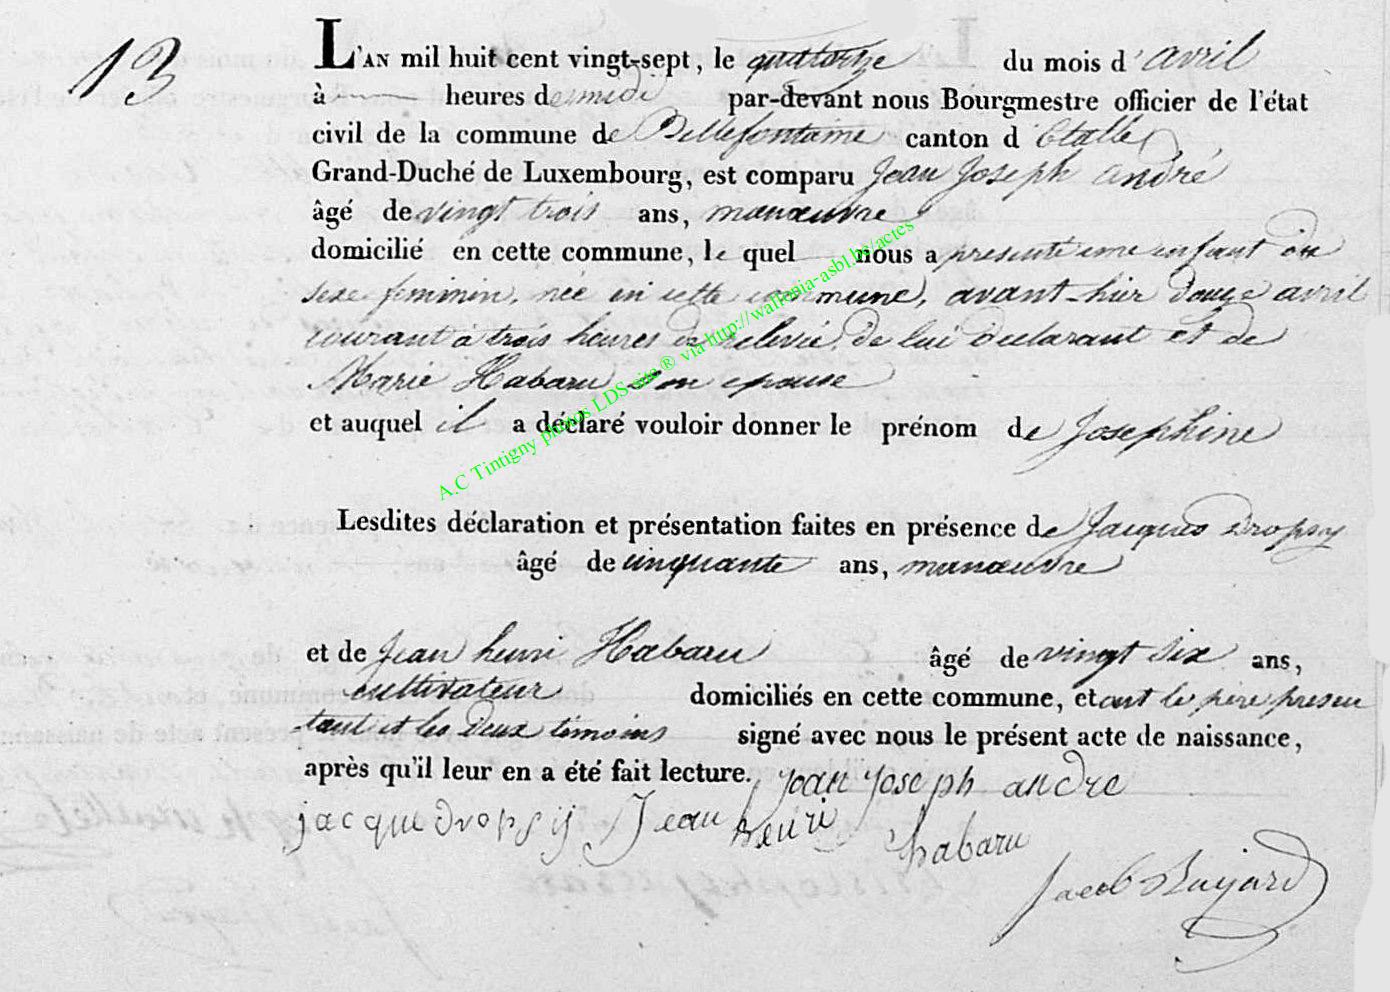 13
L'AN mil huit cent vingt-sept, le quatorze du mois d'avril
à heures de midi par-devant nous Bourgmestre officier de l'état
civil de la commune de Bellefontaine canton d'Etalle
Grand-Duché de Luxembourg, est comparu Jean Joseph andré
âgé de vingt trois ans, manœuvre
domicilié en cette commune, le quel nous a presenté une enfant du
sexe feminin, née en cette commune, avant-hier douze avril
courant à trois heures de relevée, de lui declarant et de
Marie Habaru son epouse
et auquel il a déclaré vouloir donner le prénom de Josephine
Lesdites déclaration et présentation faites en présence de Jacques Dropsy
âgé de cinquante ans, manœuvre
et de Jean henri Habaru âgé de vingt six ans,
cultivateur domiciliés en cette commune, et ont le père presen
tant et les deux témoins signé avec nous le présent acte de naissance,
après qu'il leur en a été fait lecture. Jean Joseph andre
jacque dropsij Jean henri habaru
Jacob
A.C Tintigny photos LDS site ® via http://wallonia-asbl.be/actes